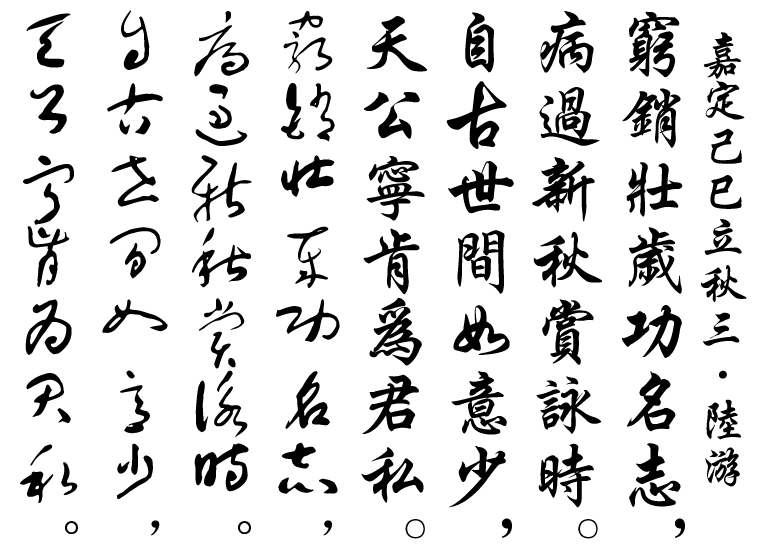 嘉定己巳立秋三・陸游
窮銷壯歲功名志，
病過新秋賞詠時。
自古世間如意少，
天公寧肯為君私。
窮銷壯歲功名志，
病過新秋賞詠時。
自古世間如意少，
天公寧肯為君私。